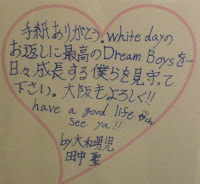 手紙ありがとう。white dayの
お返しに最高のDream Boysを…
日々成長する僕らを見守って
下さい。大阪もよろしく!!
have a good life
see ya!!
by大和男児
田中 聖